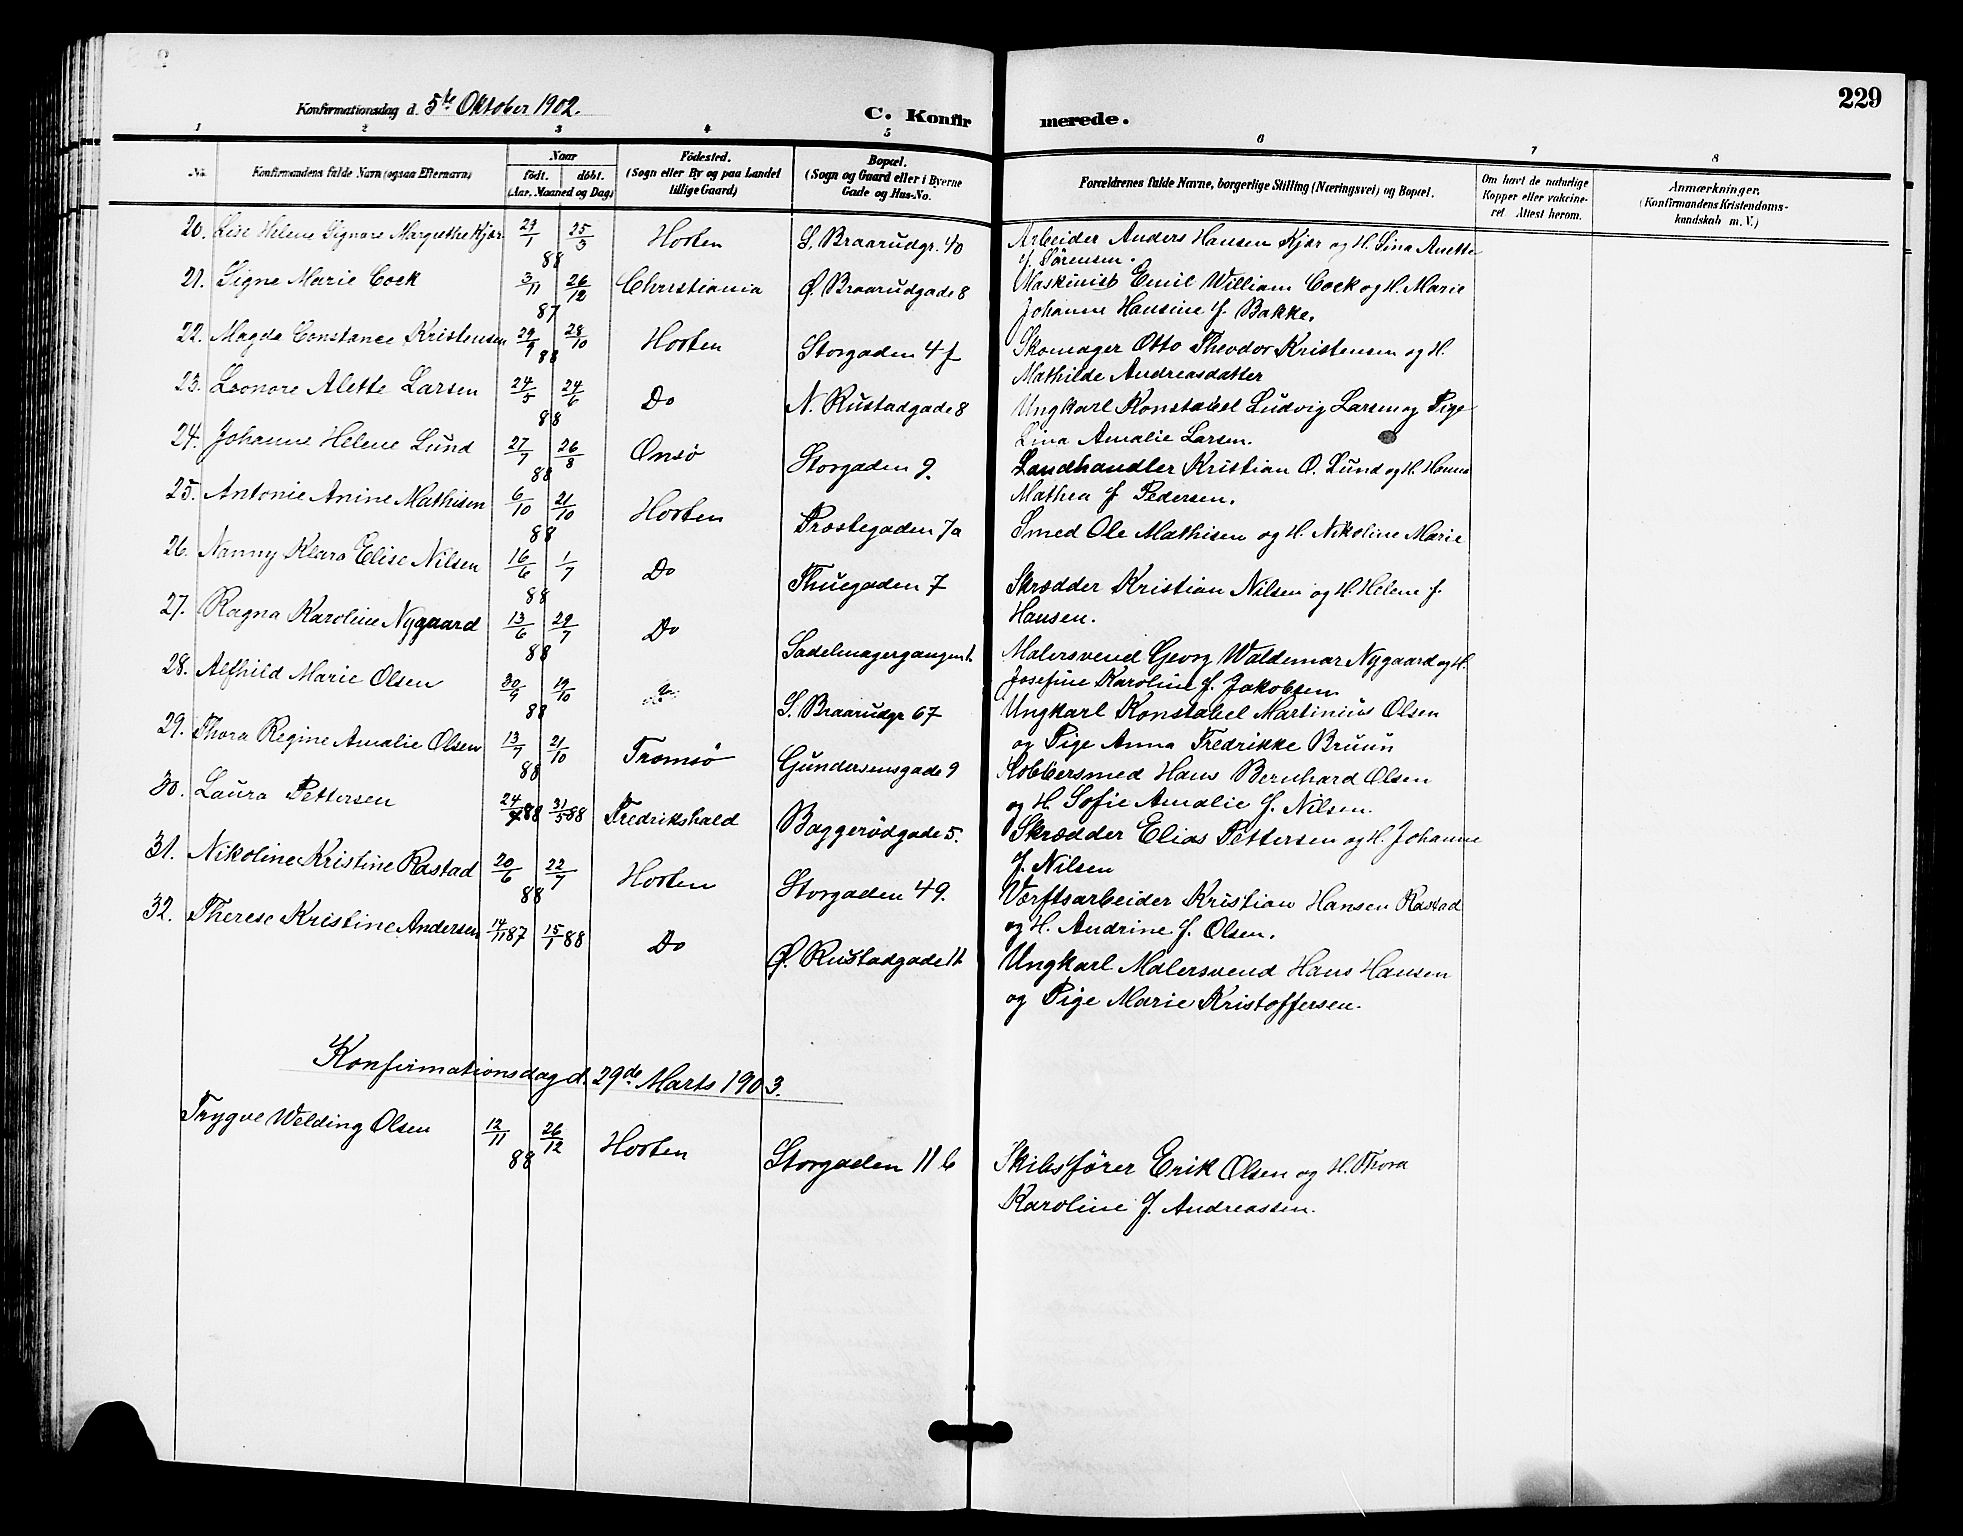 229
Konfirmationsdag d. 5te Oktober 1902.
C. Konfirmerede.
1 2 3 4 5 6 7 8
No.
Konfirmandens fulde Navn (ogsaa Efternavn)
Naar
födt. döbt.
(Aar, Maaned og Dag)
Födested.
(Sogn eller By og paa Landet
tillige Gaard)
Bopæl.
(Sogn og Gaard eller i Byerne
Gade og Hus-No.
Forældrenes fulde Navne, borgerlige Stilling (Næringsvei) og Bopæl.
Om havt de naturlige
Kopper eller vakcine-
ret Attest herom.
Anmærkninger.
(Konfirmandens Kristendoms-
kundskab m. V.)
20. Lise Helene Signore Margrethe Kjær 29/1 25/3 88 Horten S. Braarudgr. 40 Arbeider Anders Hansen Kjær og H. Sina Anette
f. Sørensen.
21. Signe Marie Cock 3/11 26/12 87 Christiania Ø. Braarudgade 8 Maskinist Emil William Cock og H. Marie
Johanne Hansine f. Bakke.
22. Magda Constance Kristensen 29/9 28/10 88 Horten Storgaden 4f Skomager Otto Theodor Kristensen og H.
Mathilde Andreasdatter
23. Leonore Alette Larsen 24/5 24/6 88 Do N. Rustadgade 8 Ungkarl Konstabel Ludvig Larsen og Pige
Lina Amalie Larsen.
24. Johanne Helene Lund 27/7 26/8 88 Onsø Storgaden 9. Landhandler Kristian O. Lund og H. Hanna
Mathea f Pedersen.
25. Antonie Anine Mathisen 6/10 21/10 88 Horten Prostegaden 7a Smed Ole Mathisen og H. Nikoline Marie
26. Nanny Klara Elise Nilsen 16/6 1/7 88 Do Thuegaden 7 Skrædder Kristian Nilsen og H. Helene f.
Hansen.
27. Ragna Karoline Nygaard 13/6 29/7 88 Do Sadelmagergangen 1. Malersvend Georg Waldemar Nygaard og H.
Josefine Karoline f. Jakobsen
28. Alfhild Marie Olsen 30/9 19/10 88 S. Braarudgr 67 Ungkarl Konstabel Martinius Olsen
og Pige Anna Fredrikke Bruun
29. Thora Regine Amalie Olsen 13/9 21/10 88 Tromsø Gundersensgade 9 Kobbersmed Hans Bernhard Olsen
og H. Sofie Amalie f. Nilsen.
30. Laura Pettersen 24/4 88 31/5 88 Fredrikshald Baggerödgade 5. Skrædder Elias Pettersen og H. Johanne
f. Nilsen
31. Nikoline Kristine Rastad 20/6 22/7 88 Horten Storgaden 49. Værftsarbeider Kristian Hansen Rastad
og H. Andrine f. Olsen.
32. Therese Kristine Andersen 14/11 87 15/1 88 Do Ø. Rustadgade 11 Ungkarl Malersvend Hans Hansen
og Pige Marie Kristoffersen.
Konfirmationsdag d. 29de Marts 1903.
Trygve Welding Olsen 12/11 26/12 88 Horten Storgaden 11 b Skibsfører Erik Olsen og H. Thora
Karoline f. Andreassen.